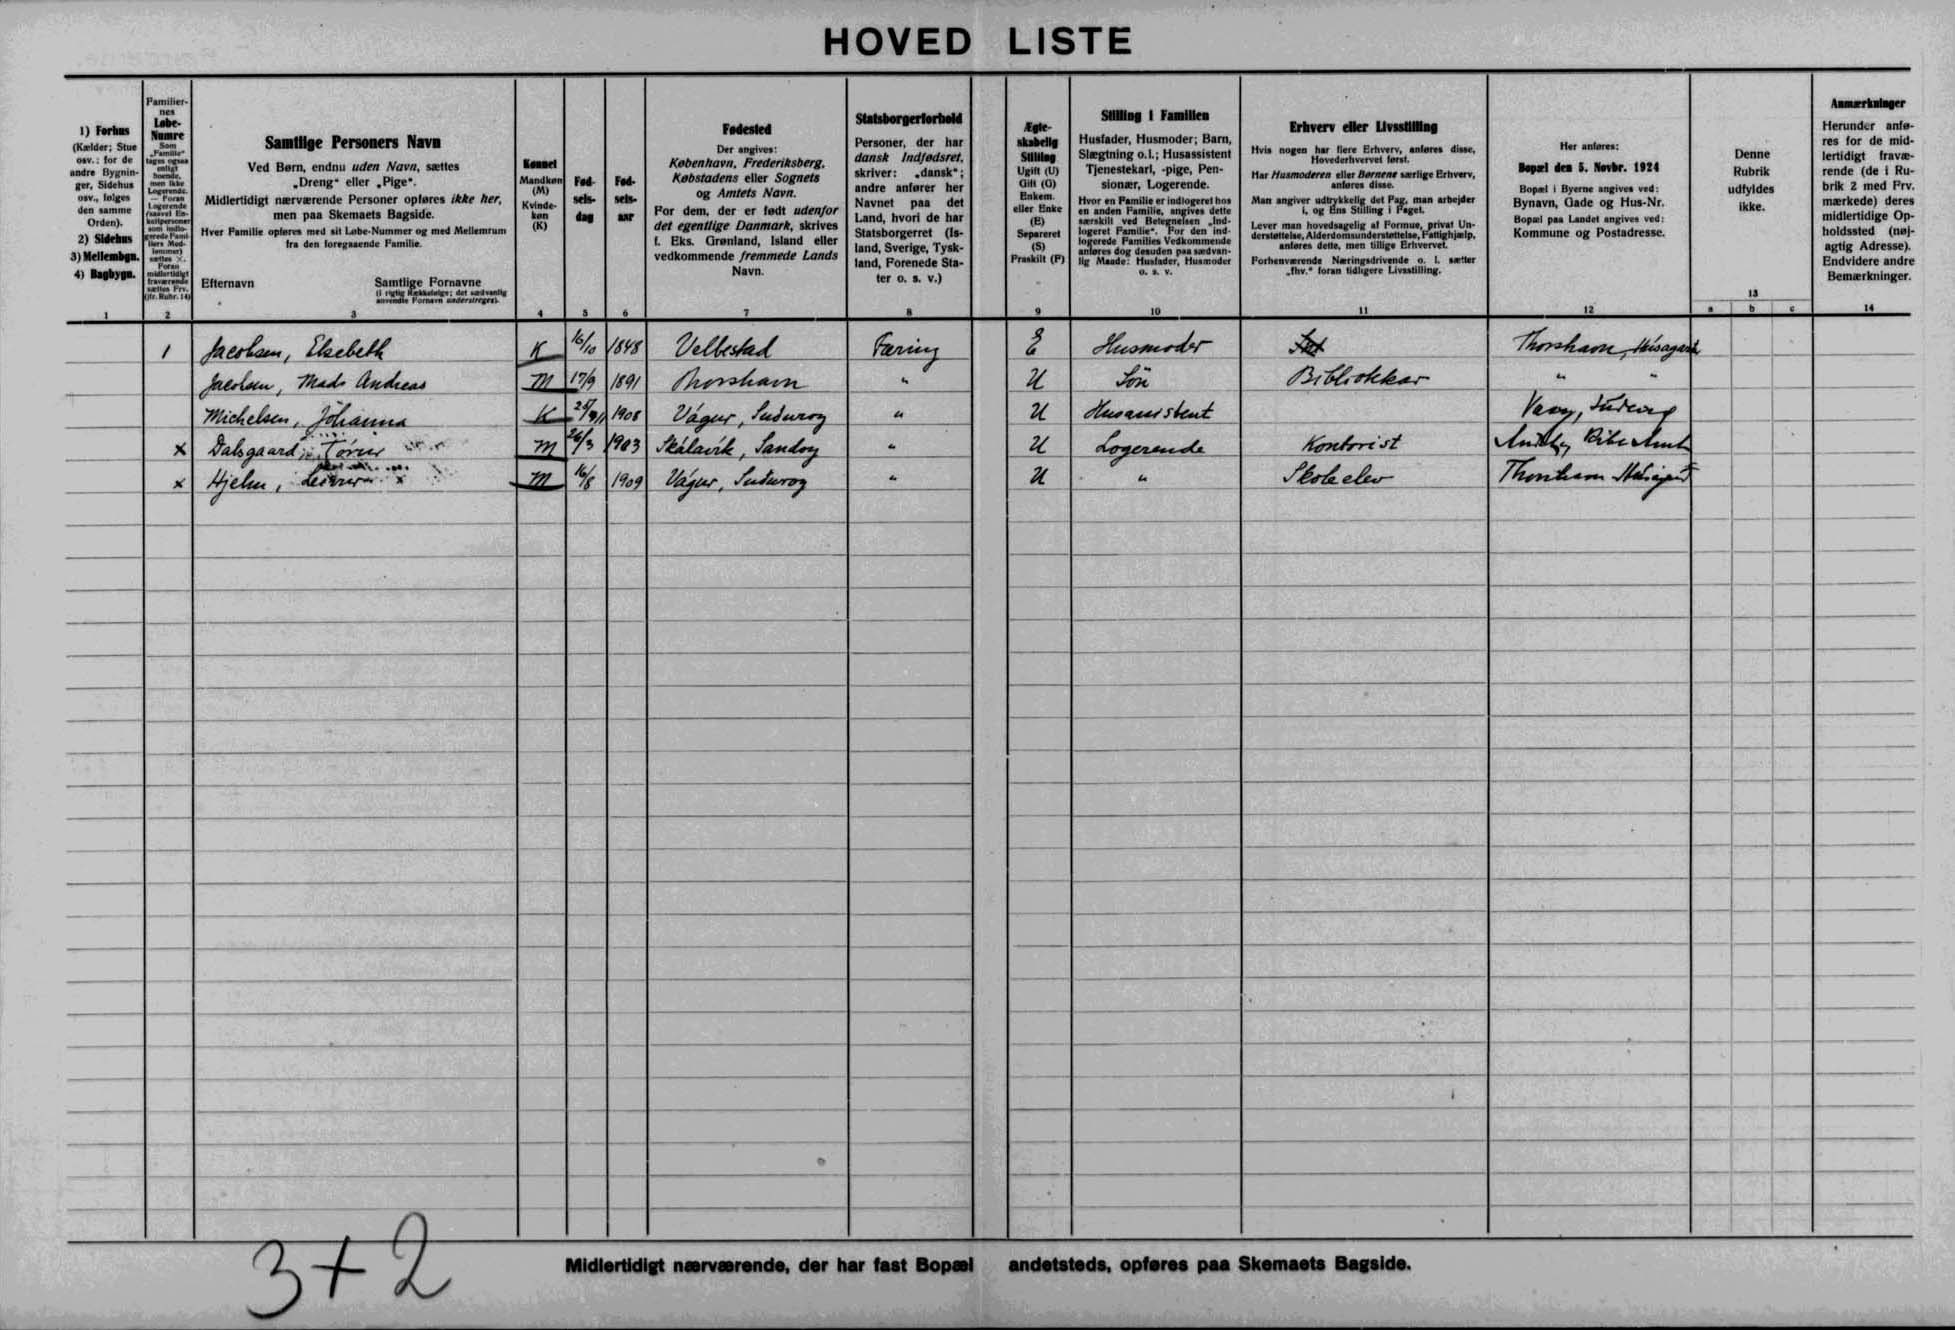 HOVED LISTE
1) Forhus
(Kælder; Stue
osv.: for de
andre Bygnin-
ger, Sidehus
osv., følges
den samme
Orden).
2) Sidehus
3) Mellembgn.
4) Bagbygn.
1
Familier-
nes
Løbe-
Numre
Som
„Familie"
tages ogsaa
enligt
boende,
men ikke
Logerende.
— Foran
Logerende
(saavel En-
keltpersoner
som indlo-
gerede Fami-
liers Med-
lemmer)
sættes ×.
Foran
midlertidigt
fraværende
sættes Frv.
(jfr. Rubr. 14)
2
Samtlige Personers Navn
Ved Børn, endnu uden Navn, sættes
„Dreng" eller „Pige".
Midlertidigt nærværende Personer opføres ikke her,
men paa Skemaets Bagside.
Hver Familie opføres med sit Løbe-Nummer og med Mellemrum
fra den foregaaende Familie.
Efternavn
Samtlige Fornavne
(i rigtig Rækkefølge; det sædvanlig
anvendte Fornavn understreges).
3
Kønnet
Mandkøn
(M)
Kvinde-
køn
(K)
4
Fød-
sels-
dag
5
Fød-
sels-
aar
6
Fødested
Der angives:
København, Frederiksberg,
Købstadens eller Sognets
og Amtets Navn.
For dem, der er født udenfor
det egentlige Danmark, skrives
f. Eks. Grønland, Island eller
vedkommende fremmede Lands
Navn.
7
Statsborgerforhold
Personer, der har
dansk Indfødsret,
skriver: „dansk";
andre anfører her
Navnet paa det
Land, hvori de har
Statsborgerret (Is-
land, Sverige, Tysk-
land, Forenede Sta-
ter o. s. v.)
8
Ægte-
skabelig
Stilling
Ugift (U)
Gift (G)
Enkem.
eller Enke
(E)
Separeret
(S)
Fraskilt (F)
9
Stilling i Familien
Husfader, Husmoder; Barn,
Slægtning o.l.; Husassistent
Tjenestekarl, -pige, Pen-
sionær, Logerende.
Hvor en Familie er indlogeret hos
en anden Familie, angives dette
særskilt ved Betegnelsen „Ind-
logeret Familie". For den ind-
logerede Families Vedkommende
anføres dog desuden paa sædvan-
lig Maade: Husfader, Husmoder
o. s. v.
10
Erhverv eller Livsstilling
Hvis nogen har flere Erhverv, anføres disse,
Hovederhvervet først.
Har Husmoderen eller Børnene særlige Erhverv,
anføres disse.
Man angiver udtrykkelig det Fag, man arbejder
i, og Ens Stilling i Faget.
Lever man hovedsagelig af Formue, privat Un-
derstøttelse, Alderdomsunderstøttelse, Fattighjælp,
anføres dette, men tillige Erhvervet.
Forhenværende Næringsdrivende o. l. sætter
„fhv." foran tidligere Livsstilling.
11
Her anføres:
Bopæl den 5. Novbr. 1924
Bopæl i Byerne angives ved:
Bynavn, Gade og Hus-Nr.
Bopæl paa Landet angives ved:
Kommune og Postadresse.
12
Denne
Rubrik
udfyldes
ikke.
13
a b c
Anmærkninger
Herunder anfø-
res for de mid-
lertidigt fravæ-
rende (de i Ru-
brik 2 med Frv.
mærkede) deres
midlertidige Op-
holdssted (nøj-
agtig Adresse).
Endvidere andre
Bemærkninger.
14
1 Jacobsen, Elsebeth K 16/10 1848 Velbestad Færing E Husmoder Thorshavn, Húsagard
Jacobsen, Mads Andreas M 17/9 1891 Thorshavn " U Søn Bibliothekar " "
Michelsen, Jóhanna K 1908 Vágur, Suduroy " U Husassistent
x Dalsgaard, M 26/3 1903 Skálavík, Sandoy " U Logerende Kontorist Ribe Amt
x Hjelm, M 16/8 1909 Vágur, Suduroy " U " Skoleelev Thorshavn
3+2
Midlertidigt nærværende, der har fast Bopæl andetsteds, opføres paa Skemaets Bagside.